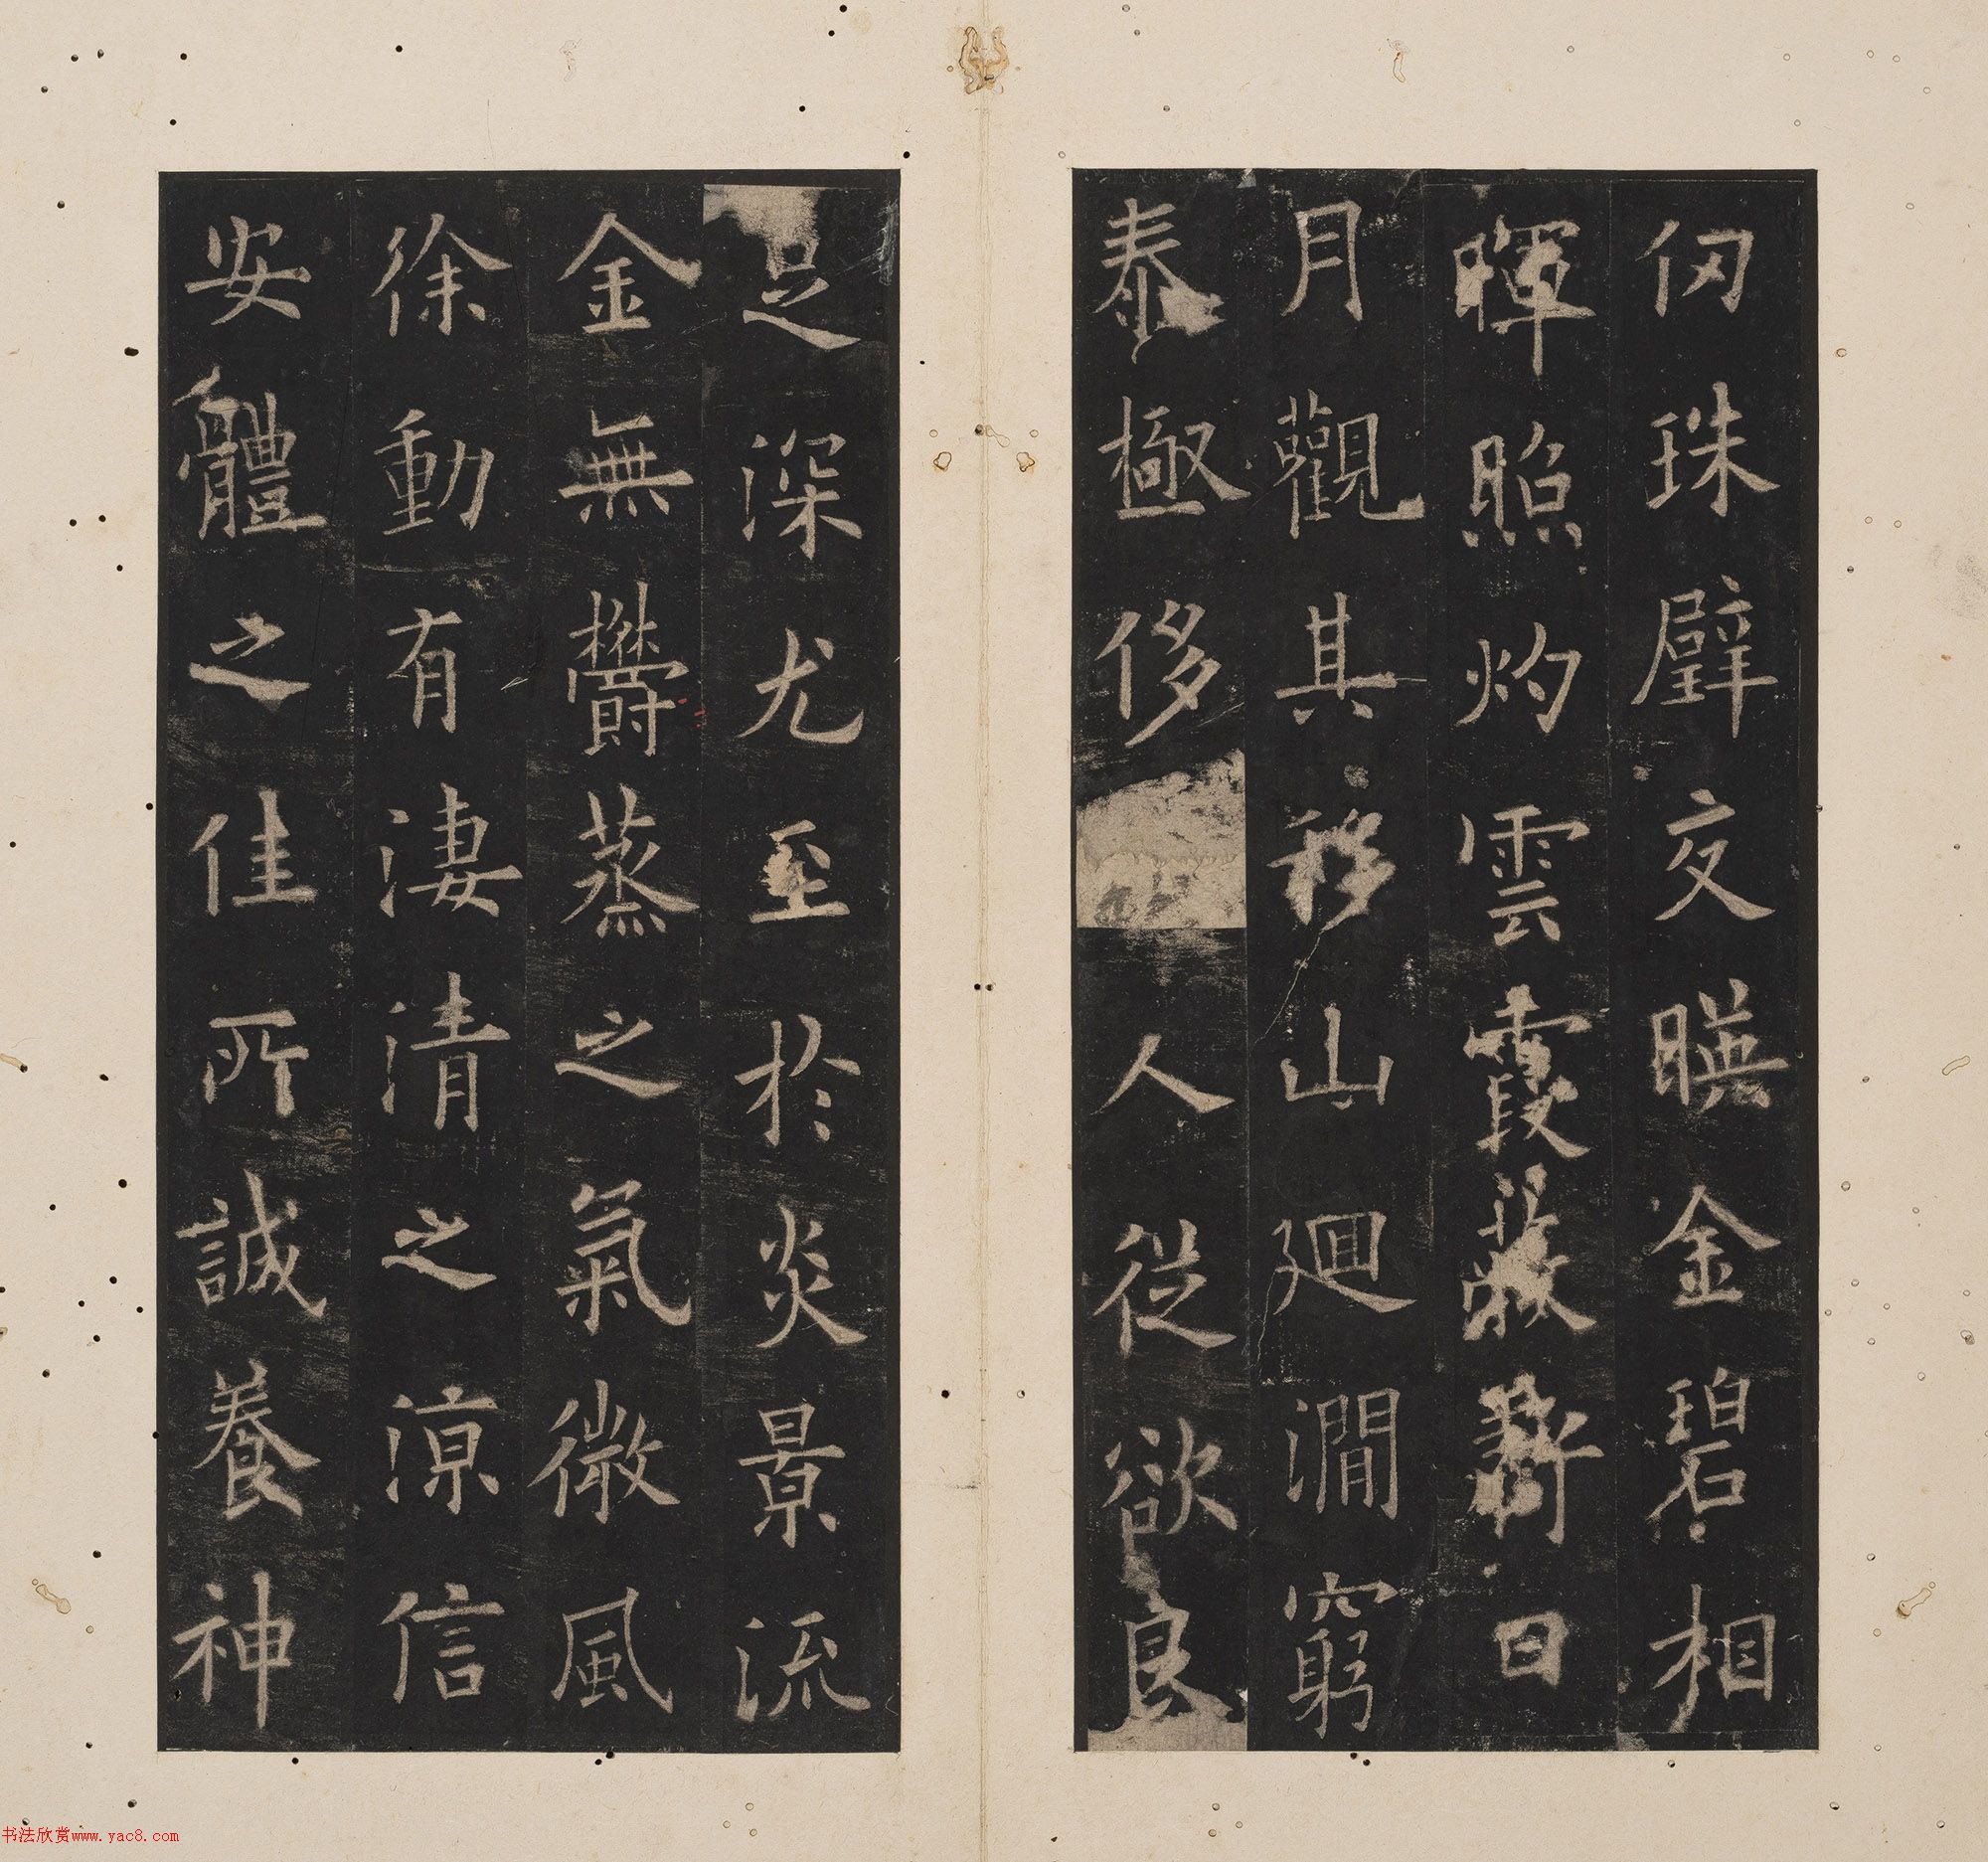 仞珠璧交暎金碧相
暉照灼雲霞蔽虧日
月觀其移山廻澗窮
泰極侈人從欲良
足深尤至於炎景流
金無欝蒸之氣微風
徐動有淒清之涼信
安體之佳所誠養神
书法欣赏www.yac8.com